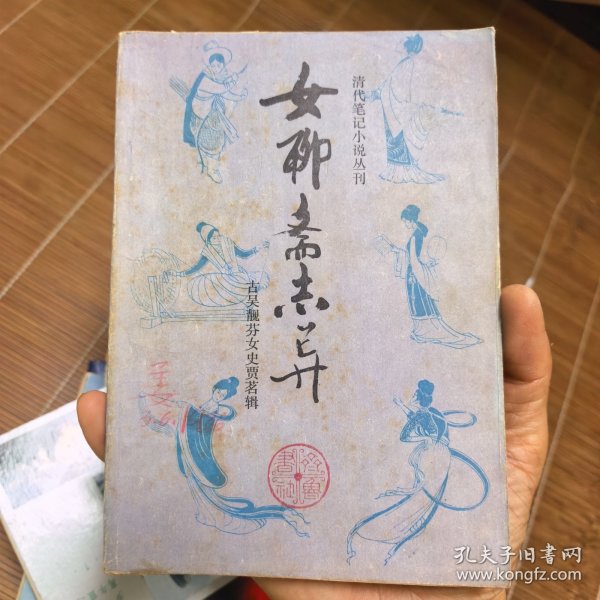 清代笔记小说丛刊
女聊斋志异
古吴靓芬女史贾茗辑
齐鲁书社
孔夫子旧书网
www.kongfz.com